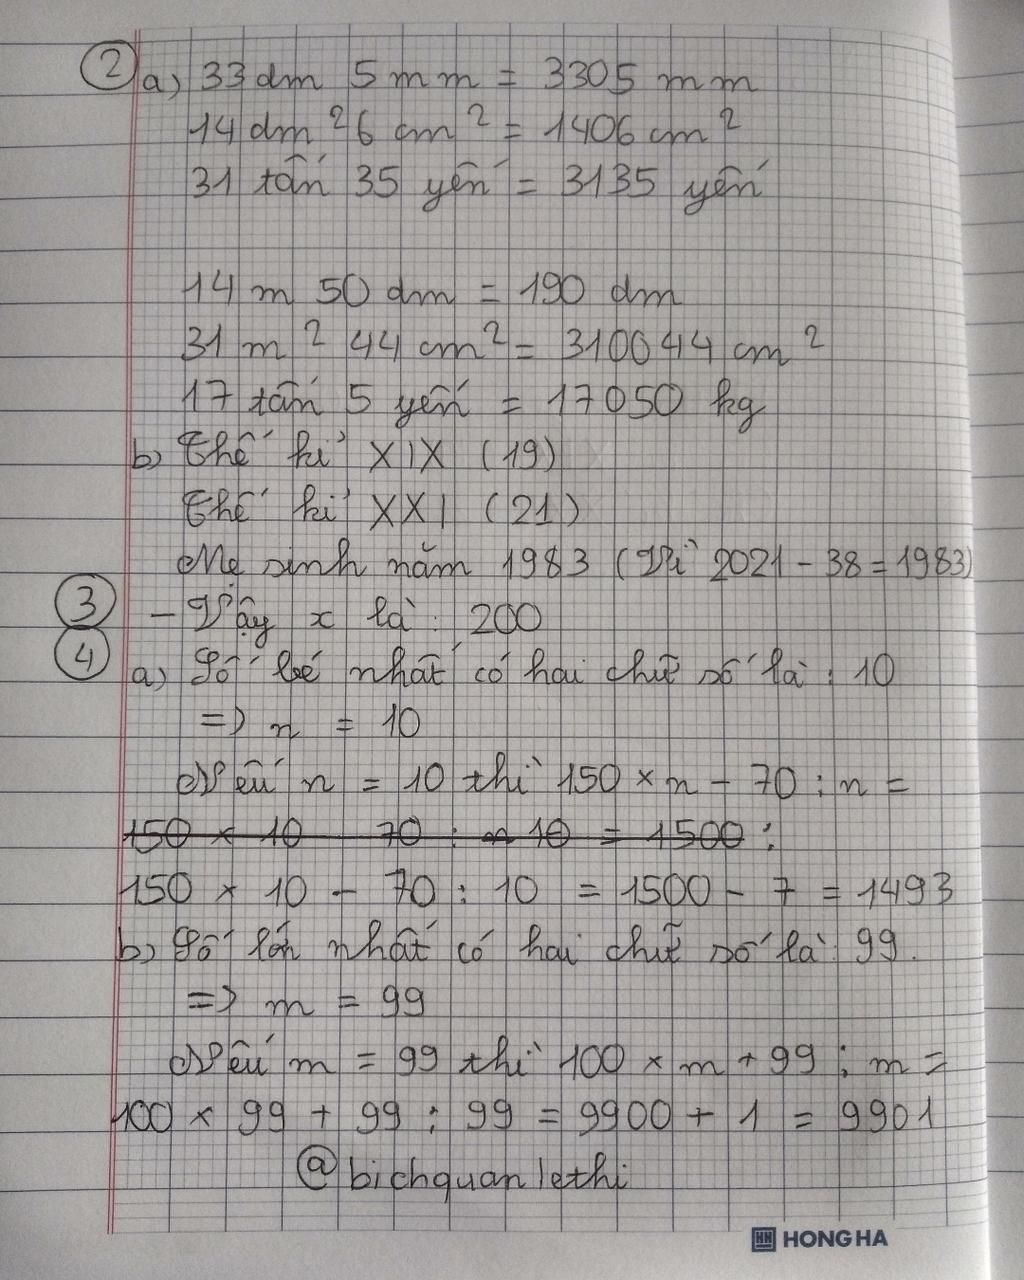 2 a) 33 dm 5 mm = 3305 mm
14 dm² 6 cm² = 1406 cm²
31 tấn 35 yến = 3135 yến
14 m 50 dm = 190 dm
31 m² 44 cm² = 310044 cm²
17 tấn 5 yến = 17050 kg
b) Thế kỉ XIX (19)
Thế kỉ XXI (21)
Mẹ sinh năm 1983 (Vì 2021 - 38 = 1983)
3 - Vậy x là : 200
4 a) Số bé nhất có hai chữ số là : 10
=> n = 10
Nếu n = 10 thì 150 × n - 70 : n =
150 × 10 - 70 : 10 = 1500 :
150 × 10 - 70 : 10 = 1500 - 7 = 1493
b) Số lớn nhất có hai chữ số là : 99.
=> m = 99
Nếu m = 99 thì 100 × m + 99 : m =
100 × 99 + 99 : 99 = 9900 + 1 = 9901
@bichquanlethi
HH HONG HA